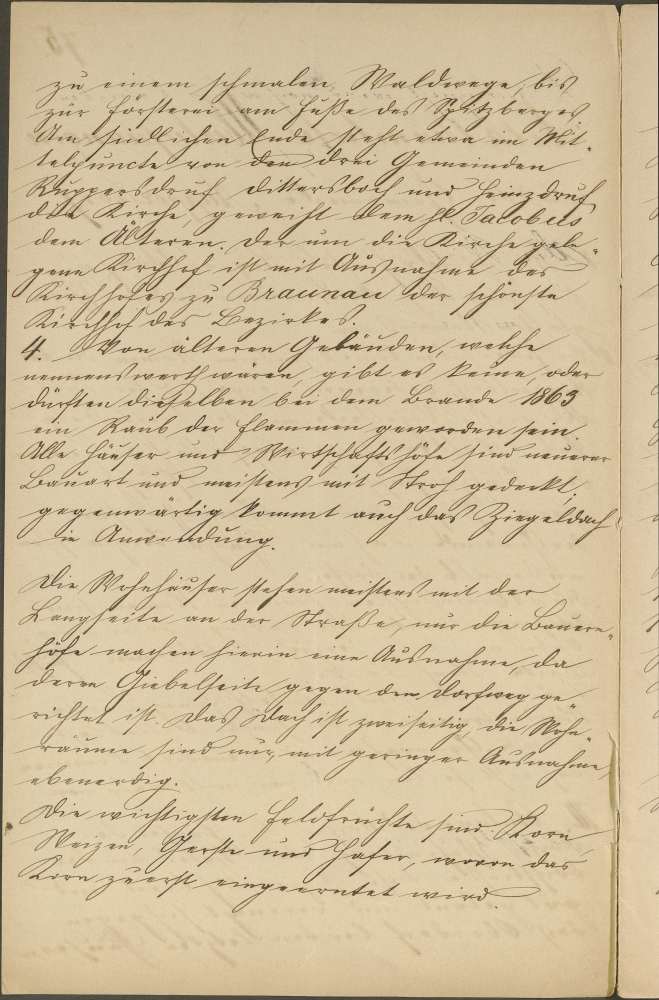 zu einem schmalen Waldwege, bis
zur Försterei am Fuße des Spitzberges
Am südlichen Ende steht etwa im Mit-
telpuncte von den drei Gemeinden
Ruppersdruf Dittersbach und Heinzdruf
die Kirche, geweiht dem hl. Jacobus
dem Älteren. Der um die Kirche gele-
gene Kirchhof ist mit Ausnahme des
Kirchhofes zu Braunau der schönste
Kirchhof des Bezirkes.
4. Von älteren Gebäuden, welche
nennenswerth wären, gibt es keine, oder
dürften dieselben bei dem Brande 1863
ein Raub der Flammen geworden sein.
Alle Häuser und Wirtschaftshöfe sind neuerer
Bauart und meistens mit Stroh gedeckt,
gegenwärtig kommt auch das Ziegeldach
in Anwendung.
Die Wohnhäuser stehen meistens mit der
Langseite an der Straße, nur die Bauern-
höfe machen hierin eine Ausnahme, da
deren Giebelseite gegen den Dorfweg ge-
richtet ist. Das Dach ist zweiseitig, die Wohn-
räume sind nur, mit geringer Ausnahme,
ebenerdig.
Die wichtigsten Feldfrüchte sind: Korn,
Weizen, Gerste und Hafer, wovon das
Korn zuerst eingeerntet wird.